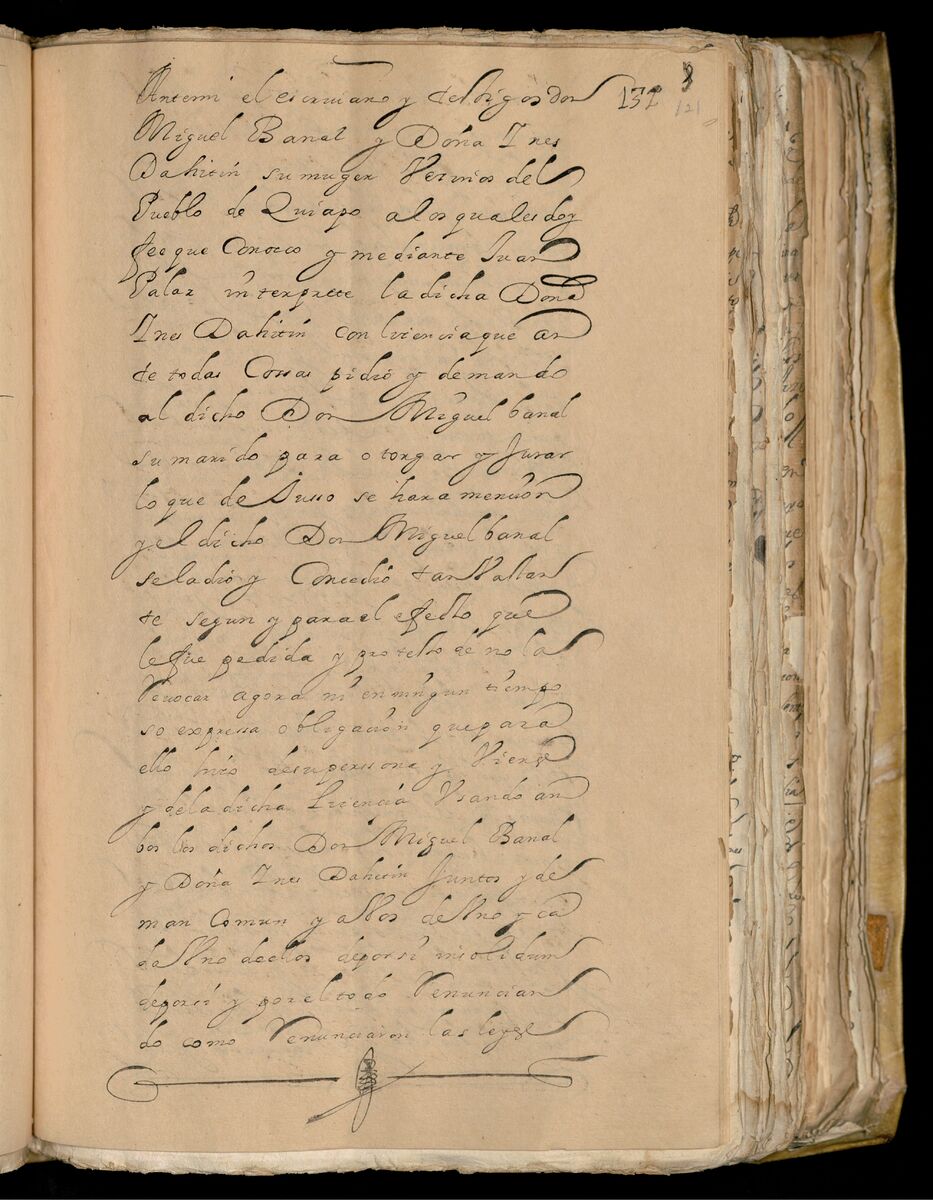 8
Antemi el escriuano y testigos don 132
121
Miguel Banal y Doña Ines
Dahitin su muger Vezinos del
Pueblo de Quiapo a los quales doy
fee que Conozco y mediante Juan
Palaz ynterprete la dicha Doña
Ines Dahitin con licencia que an
te todas Cossas pidio y demando
al dicho Don Miguel banal
su marido para otorgar y Jurar
lo que de Suso se hara mencion
y el dicho Don Miguel banal
se la dio y Concedio tan Vastan
te segun y para el efecto que
le fue pedida y protesto de no la
Reuocar agora ni en ningun tiempo
so expressa obligacion que para
ello hizo de su perssona y Vienes
y de la dicha Licencia Vsando an
bos los dichos Don Miguel Banal
y Doña Ines Dahitin Juntos y de
man Comun y a Voz de Vno y ca
da Vno dellos de por si insolidum
de por si y por el todo Renuncian
do como Renunciaron las leyes